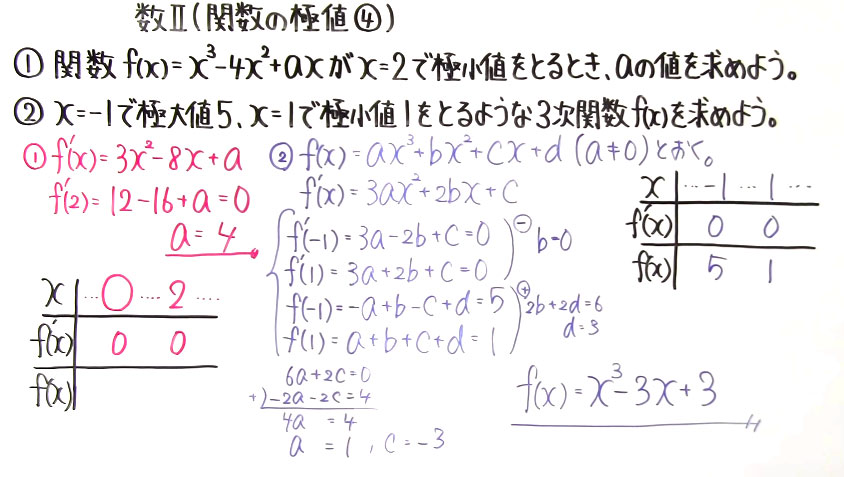 数Ⅱ(関数の極値④)
① 関数 f(x)=x³-4x²+axがx=2で極小値をとるとき、aの値を求めよう。
② x=-1で極大値5、x=1で極小値1をとるような3次関数f(x)を求めよう。
① f'(x)=3x²-8x+a
f'(2)=12-16+a=0
a=4
x … 0 … 2 …
f'(x) 0 0
f(x)
② f(x)=ax³+bx²+cx+d (a≠0)とおく。
f'(x)=3ax²+2bx+c
f'(-1)=3a-2b+c=0
f'(1)=3a+2b+c=0
⊖ b=0
f(-1)=-a+b-c+d=5
f(1)=a+b+c+d=1
⊕ 2b+2d=6
d=3
6a+2c=0
+)-2a-2c=4
4a =4
a =1, c=-3
x … -1 … 1 …
f'(x) 0 0
f(x) 5 1
f(x)=x³-3x+3